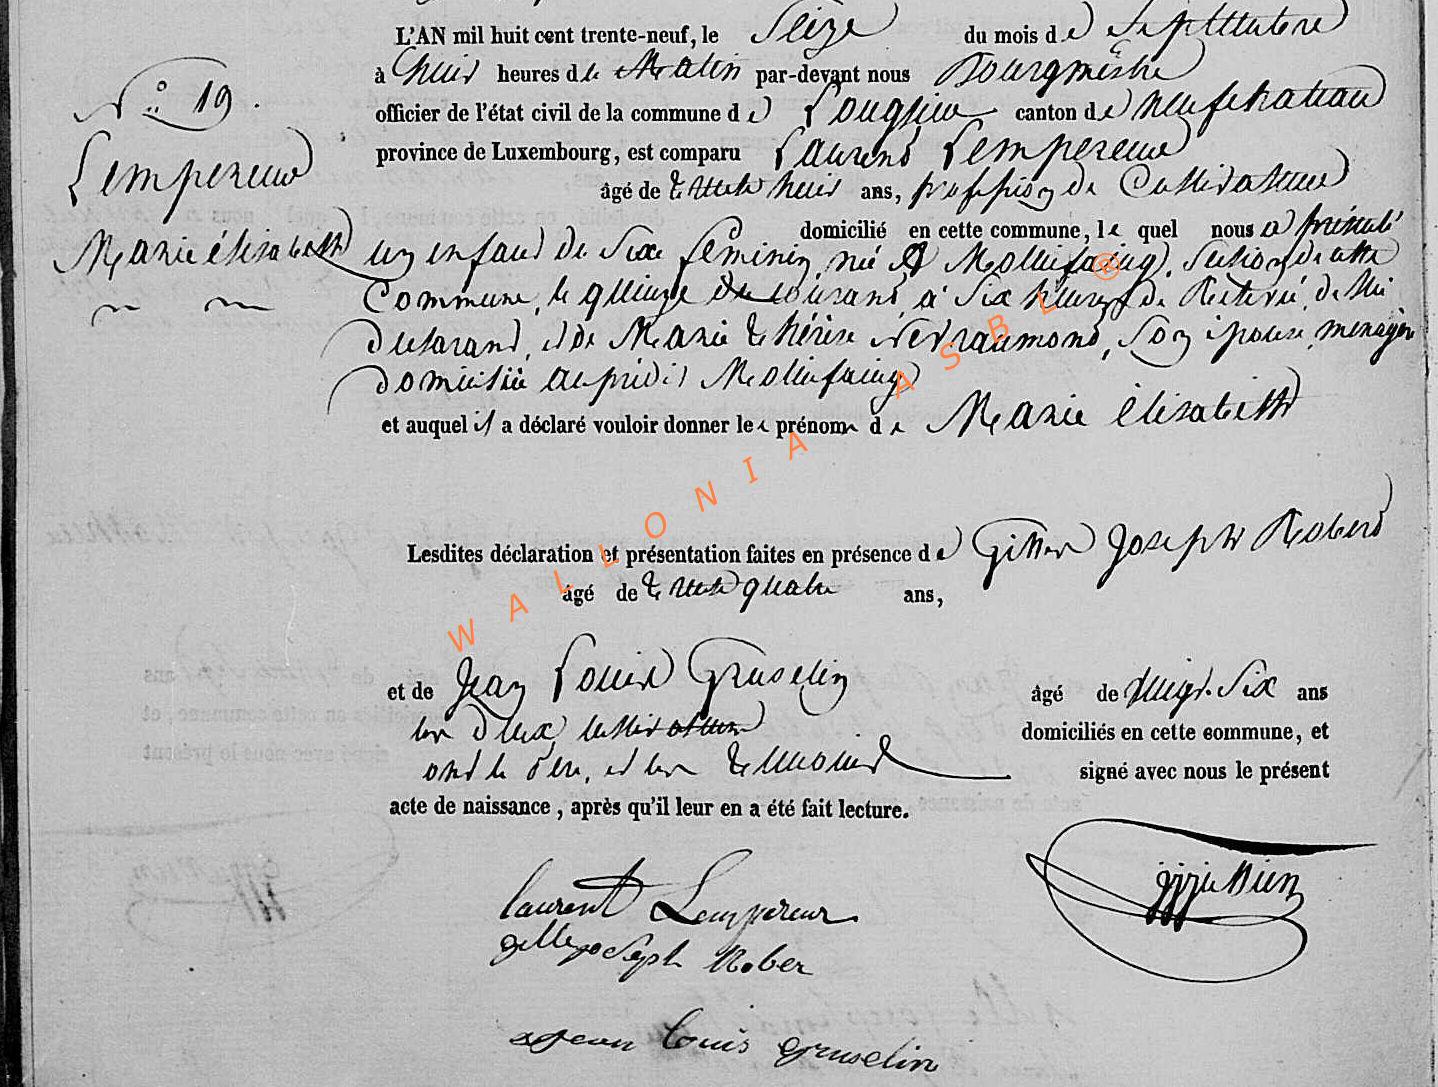 L'AN mil huit cent trente-neuf, le Seize du mois de Septembre
à huit heures de Matin par-devant nous Bourgmestre
N° 19.
officier de l'état civil de la commune de canton de neufchateau
province de Luxembourg, est comparu Laurend Lempereur
Lempereur
âgé de trente huit ans, profession de Cultivateur
domicilié en cette commune, le quel nous a présenté
Marie élisabeth
un enfand de Sexe féminin, né à Mollinfaing, Section de cette
Commune, le quinze du courand, à Six heures de
déclarand, et de Marie thérèse son épouse, menagère
domicilié au prédit Mollinfaing
et auquel il a déclaré vouloir donner les prénoms de Marie élisabeth
Lesdites déclaration et présentation faites en présence de Gilles Joseph Roberd
âgé de trente quatre ans,
et de Jean Louis Gruselin âgé de vingt Six ans
les deux cultivateurs domiciliés en cette commune, et
ont le père, et les témoins signé avec nous le présent
acte de naissance, après qu'il leur en a été fait lecture.
laurent Lempereur
gille joseph Rober
jean louis gruselin
WALLONIA ASBL ®